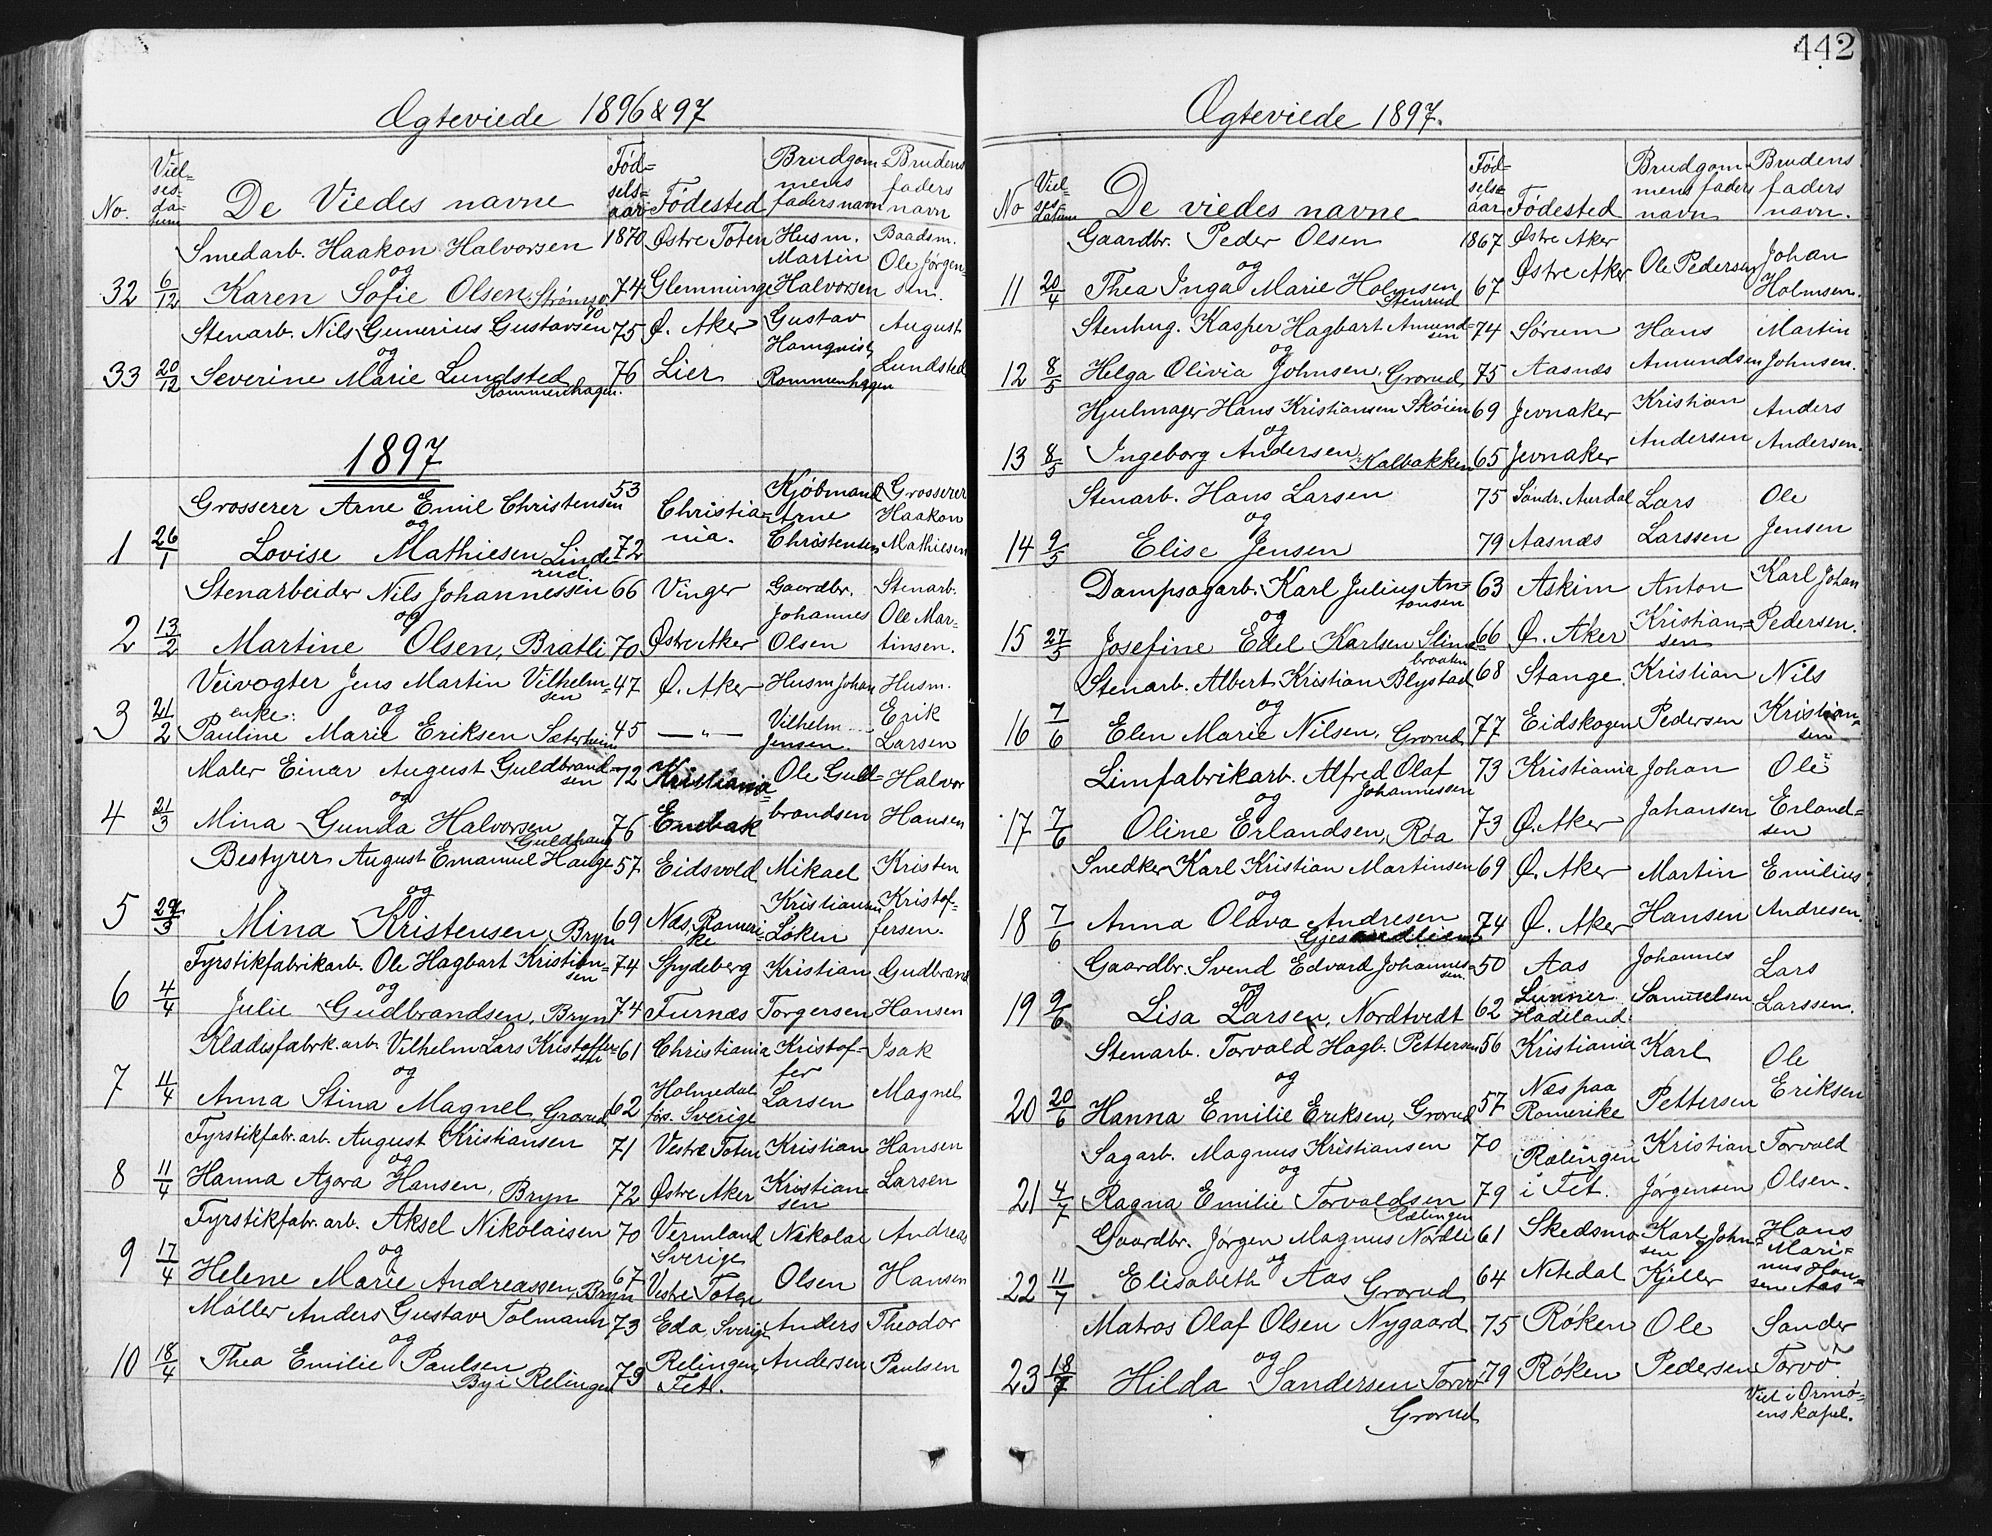 442
Ægteviede 1896 & 97
No. Viel=sesda=tum De Viedes navne Fød=sels=aar Fødested Brudgom=mens faders navn Brudens faders navn
Smedarb. Haakon Halvorsen 1870 Østre Toten Husm. Martin Baadsm. Ole Jørgen=
32 6/12 og Karen Sofie Olsen, Strømso 74 Glemminge Halvorsen sen.
Stenarb. Nils Gunerius Gustavsen 75 Ø. Aker Gustav August
33 20/12 og Severine Marie Lundsted 76 Lier Lundsted
Rommenhagen. Rommenhagen
1897
Grosserer Arne Emil Christensen 53 Christia= Kjøbmand Arne Grosserer Haakon
1 26/1 og Lovise Mathiesen, Linde=rud 72 nia. Christensen Mathiesen
Stenarbeider Nils Johannessen 66 Vinger Gaardbr. Johannes Stenarb. Ole Mar=
2 13/2 og Martine Olsen, Bratli 70 Østre Aker Olsen tinsen.
Veivogter Jens Martin Vilhelm=sen 47 Ø. Aker Husm Johan Husm.
3 21/2 enke: og Pauline Marie Eriksen Sæterheim 45 — " — Vilhelm Jensen. Erik Larsen
Maler Einar August Guldbrand=sen 72 Kristiania Ole Guld= Halvor
4 21/3 og Mina Gunda Halvorsen 76 Enebak brandsen Hansen
Guldhaug
Bestyrer August Emanuel Hauge 57 Eidsvold Mikael Kristen
5 29/3 og Mina Kristensen, Bryn 69 Næs, Romeri=ke Kristiansen Løken Kristof=fersen.
Fyrstikfabrikarb. Ole Hagbart Kristian=sen 74 Spydeberg Kristian Gudbrand
6 4/4 og Julie Gudbrandsen, Bryn 74 Furnæs Torgersen Hansen
Klædesfabrk. arb. Vilhelm Lars Kristoffer=sen 61 Christiania Kristof=fer Isak
7 11/4 og Anna Stina Magnel, Grorud 62 Holmedal Sverige Larsen Magnel
Fyrstikfabr. arb. August Kristiansen 71 Vestre Toten Kristian Hansen
8 11/4 og Hanna Agora Hansen, Bryn 72 Østre Aker Kristian=sen Larsen
Fyrstikfabr. arb. Aksel Nikolaisen 70 Vermland Sverige Nikolai Andreas
9 17/4 og Helene Marie Andreassen, Bryn 67 Vestre Toten Olsen Hansen
Møller Anders Gustav Tolmann 73 Eda, Sverig Anders Theodor
10 18/4 og Thea Emilie Paulsen 79 Relingen, Fet. Andersen Paulsen
By i Relingen
Ægteviede 1897.
No Viel=ses=datum De viedes navne Fød=selsaar Fødested Brudgom=mens faders navn Brudens faders navn.
Gaardbr. Peder Olsen 1867 Østre Aker
11 20/4 og Thea Inga Marie Holmsen 67 Østre Aker Ole Pedersen Johan Holmsen.
Stenrud
Stenhug. Kasper Hagbart Amund=sen 74 Sørum Hans Martin
12 8/5 og Helga Olivia Johnsen, Grorud 75 Aasnæs Amundsen Johnsen.
Hjulmager Hans Kristiansen Skøien 69 Jevnaker Kristian Anders
13 8/5 og Ingeborg Andersen, Kalbakken 65 Jevnaker Andersen Andersen.
Stenarb. Hans Larsen 75 Søndr. Aurdal Lars Ole
14 9/5 og Elise Jensen 79 Aasnæs Larssen Jensen
Dampsagarb. Karl Julius An=tonsen 63 Askim Anton Karl Johan
15 27/5 og Josefine Edel Karlsen Slime=braaten 66 Ø. Aker Kristian=sen Pedersen.
Stenarb. Albert Kristian Blystad 68 Stange Kristian Nils
16 7/6 og Elen Marie Nilsen, Grorud 77 Eidskogen Pedersen Kristian=sen
Limfabrikarb. Alfred Olaf Johannessen 73 Kristiania Johan Ole
17 7/6 og Oline Erlandsen, Røa 73 Ø. Aker Johansen Erland=sen
Snedker Karl Kristian Martinsen 69 Ø. Aker Martin Emilius
18 7/6 og Anna Olava Andresen 74 Ø. Aker Hansen Andresen.
Gaardbr. Svend Edvard Johannes=sen 50 Aas Johannes Lars
19 9/6 og Lisa Larsen, Nordtvedt 62 Lunner Hadeland. Samuelsen Larssen.
Stenarb. Torvald Hagb. Pettersen 56 Kristiania Karl Ole
20 20/6 og Hanna Emilie Eriksen, Grorud 57 Næs paa Romerike Pettersen Eriksen
Sagarb. Magnus Kristiansen 70 Rælingen Kristian Torvald
21 4/7 og Ragna Emilie Torvaldsen 79 i Fet. Jørgensen Olsen.
Rælingen
Gaardbr. Jørgen Magnus Nordli 61 Skedsmo Karl John=sen Hans Mari=
22 11/7 og Elisabeth Aas Grorud 64 Nitedal Kjeller nus Han=sen Aas
Matros Olaf Olsen Nygaard 75 Røken Ole Sander
23 18/7 og Hilda Sandersen Torvø 79 Røken Pedersen Torvø
Grorud
Viet i Ormø=enskapel.